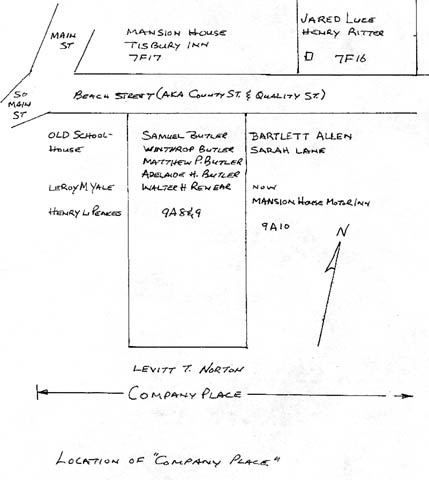 MAIN
ST
MANSION HOUSE
TISBURY INN
7F17
JARED LUCE
HENRY RITTER
7F16
SO
MAIN
ST
BEACH STREET (AKA COUNTY ST. & QUALITY ST.)
OLD SCHOOL-
HOUSE
LEROY M. YALE
HENRY W PEAKES
SAMUEL BUTLER
WINTHROP BUTLER
MATTHEW P. BUTLER
ADELAIDE H. BUTLER
WALTER H RENEAR
9A8&9
BARTLETT ALLEN
SARAH LANE
NOW
MANSION HOUSE MOTOR INN
9A10
N
LEVITT T. NORTON
COMPANY PLACE
LOCATION OF "COMPANY PLACE"